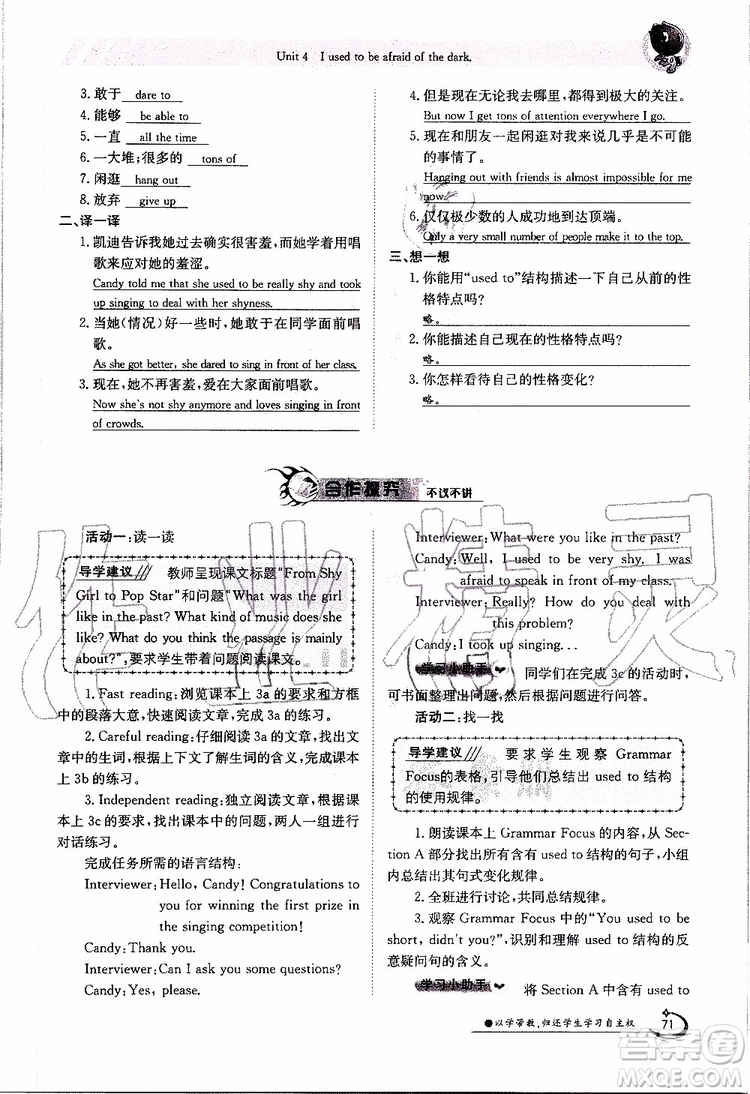 Unit 4 I used to be afraid of the dark.
3. 敢于 dare to
4. 能够 be able to
5. 一直 all the time
6. 一大堆;很多的 tons of
7. 闲逛 hang out
8. 放弃 give up
二、译一译
1. 凯迪告诉我她过去确实很害羞,而她学着用唱
歌来应对她的羞涩。
Candy told me that she used to be really shy and took
up singing to deal with her shyness.
2. 当她(情况)好一些时,她敢于在同学面前唱
歌。
As she got better, she dared to sing in front of her class.
3. 现在,她不再害羞,爱在大家面前唱歌。
Now she's not shy anymore and loves singing in front
of crowds.
4. 但是现在无论我去哪里,都得到极大的关注。
But now I get tons of attention everywhere I go.
5. 现在和朋友一起闲逛对我来说几乎是不可能
的事情了。
Hanging out with friends is almost impossible for me
now.
6. 仅仅极少数的人成功地到达顶端。
Only a very small number of people make it to the top.
三、想一想
1. 你能用“used to”结构描述一下自己从前的性
格特点吗?
略。
2. 你能描述自己现在的性格特点吗?
略。
3. 你怎样看待自己的性格变化?
略。
合作探究 不议不讲
活动一:读一读
导学建议 教师呈现课文标题“From Shy
Girl to Pop Star”和问题“What was the girl
like in the past? What kind of music does she
like? What do you think the passage is mainly
about?”,要求学生带着问题阅读课文。
1. Fast reading:浏览课本上 3a 的要求和方框
中的段落大意,快速阅读文章,完成 3a 的练习。
2. Careful reading:仔细阅读 3a 的文章,找出文
章中的生词,根据上下文了解生词的含义,完成课本
上 3b 的练习。
3. Independent reading:独立阅读文章,根据课
本上 3c 的要求,找出课本中的问题,两人一组进行
对话练习。
完成任务所需的语言结构:
Interviewer:Hello, Candy! Congratulations to
you for winning the first prize in
the singing competition!
Candy:Thank you.
Interviewer:Can I ask you some questions?
Candy:Yes, please.
Interviewer:What were you like in the past?
Candy:Well, I used to be really shy. I was
afraid to speak in front of my class.
Interviewer:Really? How do you deal with
this problem?
Candy:I took up singing...
学习小助手 同学们在完成 3c 的活动时,
可书面整理出问题,然后根据问题进行问答。
活动二:找一找
导学建议 要求学生观察 Grammar
Focus的表格,引导他们总结出 used to 结构
的使用规律。
1. 朗读课本上 Grammar Focus 的内容,从 Sec-
tion A 部分找出所有含有 used to 结构的句子,小组
内总结出其句式变化规律。
2. 全班进行讨论,共同总结规律。
3. 观察 Grammar Focus 中的“You used to be
short, didn't you?”,识别和理解 used to 结构的反
意疑问句的构成。
学习小助手 将 Section A 中含有 used to
●以学带教,归还学生学习自主权
71
作业精灵
答案圈
MXQE.COM